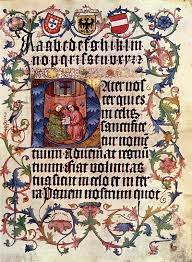 A a b c d e f g h i k l m
n o p q r ſ s t u v x y z
PAter noſ
ter qui es
in celis
sanctifice
tur nomē
tuum adueniat regnū
tuum fiat voluntas
tua sicut in celo et in ter
ra Panem nostrum quot